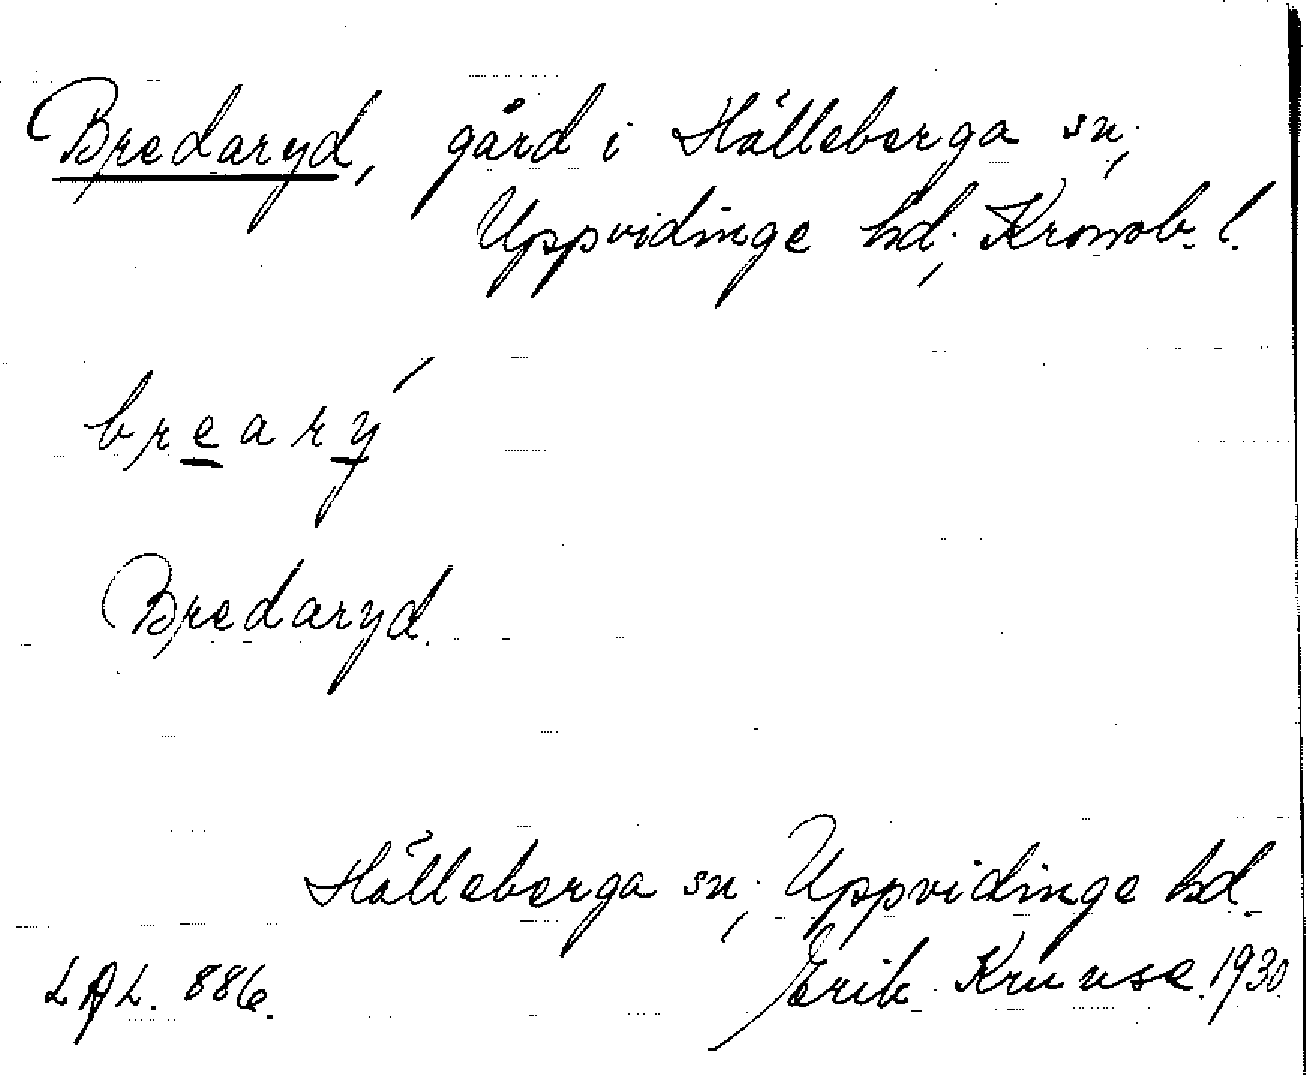 Bredaryd, gård i Hälleberga sn.,
Uppvidinge hd., Kronob. l.
breary´
Bredaryd.
Hälleberga sn., Uppvidinge hd.
L A L. 886. Erik Kruuse. 1930.